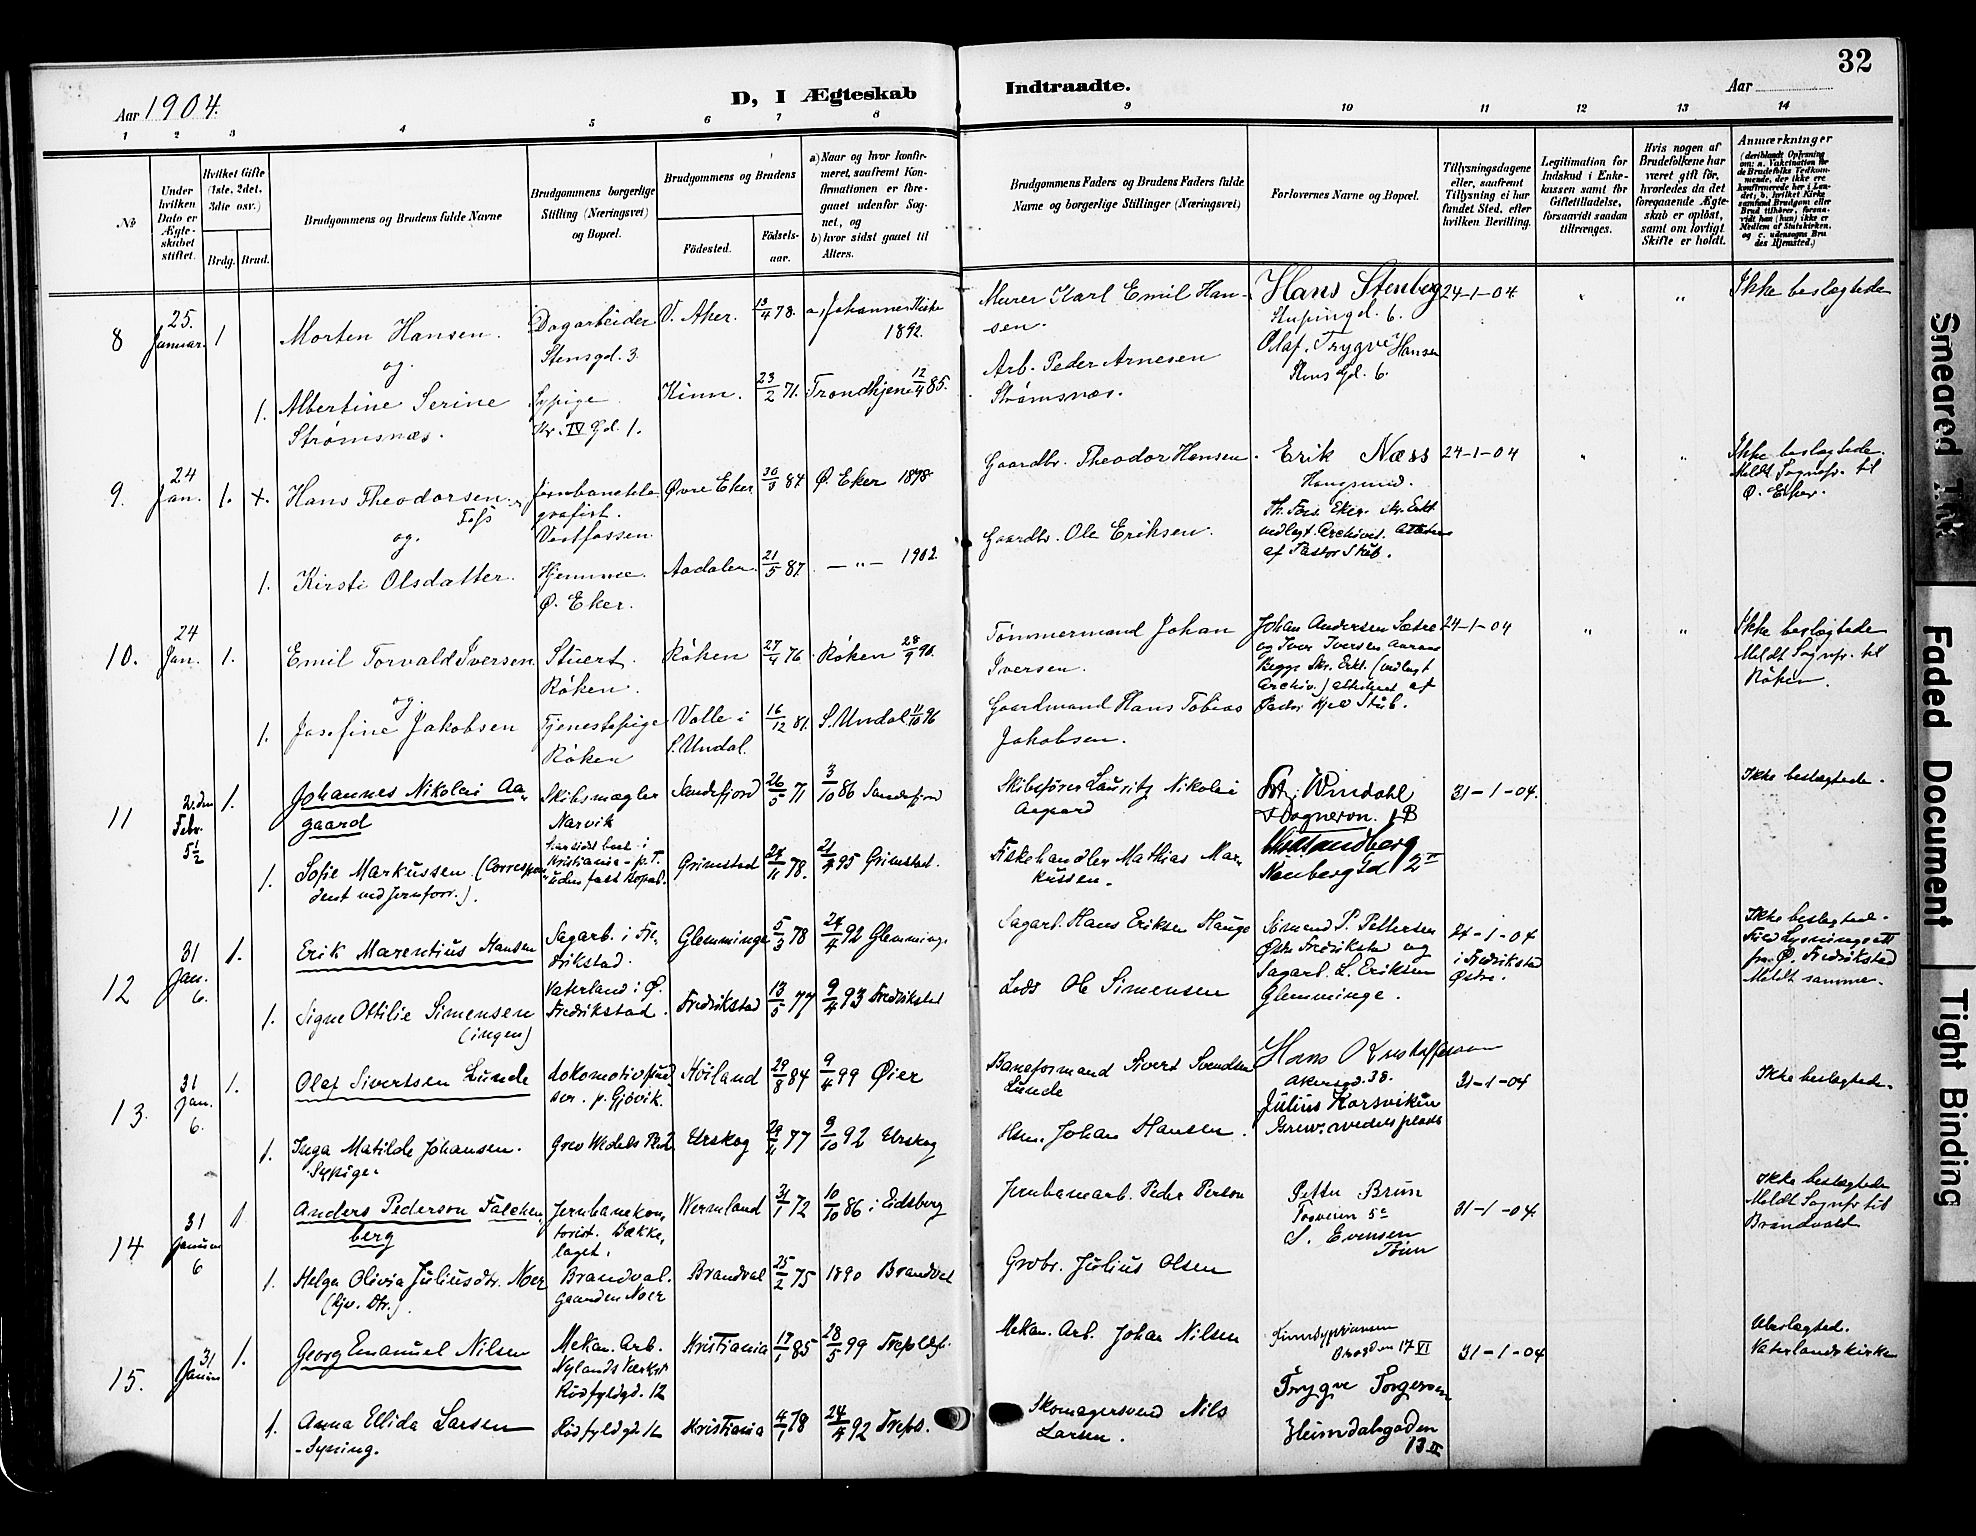 32
Aar 1904.
D, I Ægteskab
Indtraadte.
Aar
1 2 3 4 5 6 7 8 9 10 11 12 13 14
No
Under hvilken Dato er Ægteskabet stiftet.
Hvilket Gifte (1ste, 2det, 3die osv.)
Brdg. Brud.
Brudgommens og Brudens fulde Navne
Brudgommens borgerlige Stilling (Næringsvei) og Bopæl.
Brudgommens og Brudens
Fødested.
Fødselsaar.
a) Naar og hvor konfirmeret, saafremt Konfirmationen er foregaaet udenfor Sognet, og
b) hvor sidst gaaet til Alters.
Brudgommens Faders og Brudens Faders fulde Navne og borgerlige Stillinger (Næringsvei)
Forlovernes Navne og Bopæl.
Tillysningsdagene eller, saafremt Tillysning ei har fundet Sted, efter hvilken Bevilling.
Legitimation for Indskud i Enkekassen samt for Giftetilladelse, forsaavidt saadan tiltrænges.
Hvis nogen af Brudefolkene har været gift før, hvorledes da det foregaaende Ægteskab er opløst, samt om lovligt Skifte er holdt.
Anmærkninger
(deriblandt Oplysning om: a. Vakcination for de Brudefolks Vedkommende, der ikke ere konfirmerede her i Landet; b. hvilket Kirkesamfund Brudgom eller Brud tilhører, forsaavidt han (hun) ikke er Medlem af Statskirken, og c. udensogns Brudes Hjemsted.)
8 25. Januar. 1 Morten Hansen Dagarbeider Stensgd. 3 V. Aker. 13/4 78. a, Johannes Kirke 1892. Murer Karl Emil Hansen. Hans Stenberg 24-1-04 " " Ikke beslægtede
og. Stupingd. 6.
Olaf Trygve Hansen
Stens Gd. 6.
1. Albertine Serine Strømsnæs. Sypige Kr. IV Gd. 1. Kinn. 23/2 71. Trondhjem 12/4 85. Arb. Peder Arnesen Strømsnæs.
9. 24 Jan. 1. +. Hans Theodorsen Foss Jernbanetelegrafist. Vestfossen Øvre Eker 30/3 87. Ø. Eker 1898. Gaardbr. Theodor Hansen Erik Næss 24-1-04 " " Ikke beslægtede. Meldt Sognepr. til Ø. Eker.
og. Haugsund.
1. Kirsti Olsdatter. Hjemme. Ø. Eker. Aadalen 21/5 87. — " — 1902. Gaardbr. Ole Eriksen.
Th. Foss Eker. skr. Erkl. vedlagt Archivet. af Pastor Stub.
10. 24 Jan. 1. Emil Torvald Iversen Stuert. Røken. Røken 27/4 76. Røken 28/9 90. Tømmermand Johan Iversen. Johan Andersen Sætre og Iver Iversen 24-1-04 " " Ikke beslægtede Meldt Sognepr. til Røken.
og. Begge Skr. Erkl. (vedlagt Archiv.) attesteret af Pastor Kjeld Stub.
1. Josefine Jakobsen Tjenestepige Røken Valle i S. Undal. 16/12 81. S. Undal 11/10 96 Gaardmand Hans Tobias Jakobsen.
11 2den Febr. 5½ 1. Johannes Nikolai Aagaard Skibsmægler Narvik Sandefjord 26/5 71 3/10 86 Sandefjord Skibsfører Lauritz Nikolai Aagaard Windahl 31-1-04. Ikke beslægtede.
1. Sofie Markussen (Correspondent ved Jernforr.). sidst bost. i Kristiania - p. T. uden fast Bopæl. Grimstad 24/11 78. 21/4 95 Grimstad. Fiskehandler Mathias Markussen. Sandberg
12 31 Jan. 6. 1. Erik Marentius Hansen Sagarb. i Fredrikstad. Glemminge 5/3 78 24/4 92 Glemminge Sagarb. Hans Eriksen Hauge Simend P. Pettersen Østre Fredrikstad og Sagarb. L. Eriksen Glemminge. 24-1-04 i Fredrikstad Østre. Ikke beslægtede. fra Ø. Fredrikstad Meldt samme.
1. Signe Ottilie Simensen (ingen) Vaterland i Ø. Fredrikstad. Fredrikstad 13/5 77 9/4 93 Fredrikstad Lods Ole Simensen
13. 31 Jan. 6. 1. Olaf Sivertsen Lunde Lokomotivpudser. p. Gjøvik. Høiland 29/8 84 9/4 99 Øier Baneformand Sivert Svendsen Lunde Hans Kristoffersen Akersgd. 38. 31-1-04 Ikke beslægtede.
1. Inga Matilde Johansen. Sypige. Grev Wedels Pl. 2 Urskog 29/11 77 9/10 92 Urskog Hsm. Johan Hansen. Julius Korsviken Grev. wedels plads
14 31 Januar 6 1 Anders Pederson Falckenberg Jernbanekontorist. Bækkelaget. Wermland 31/1 72 10/10 86 i Eidsberg Jernbanearb. Peder Person Petter Brun 5c S. Evensen Tøien 31-1-04. Ikke beslægtede Meldt Sognepr. til Brandvald
1. Helga Olivia Juliusdtr. Noer (Gjv. Dtr.). Brandval. gaarden Noer Brandval 25/2 75 1890 Brandval Grdbr. Julius Olsen
15. 31 Januar 1. Georg Emanuel Nilsen Mekan. Arb. Nylands Værkst. Rødfyldgd. 12 Kristiania 17/1 85 28/5 99 Mekan. Arb. Johan Nilsen 17 VI 31-1-04 Ubeslægted. Vaterlands kirke
1. Anna Ellida Larsen - Syning. Rødfyldgd. 12 Kristiania 4/1 78 24/4 92 Skomagersvend Nils Larsen. Trygve Torgersen Heimdalsgaden 13 II
Smeared Ink
Faded Document
Tight Binding